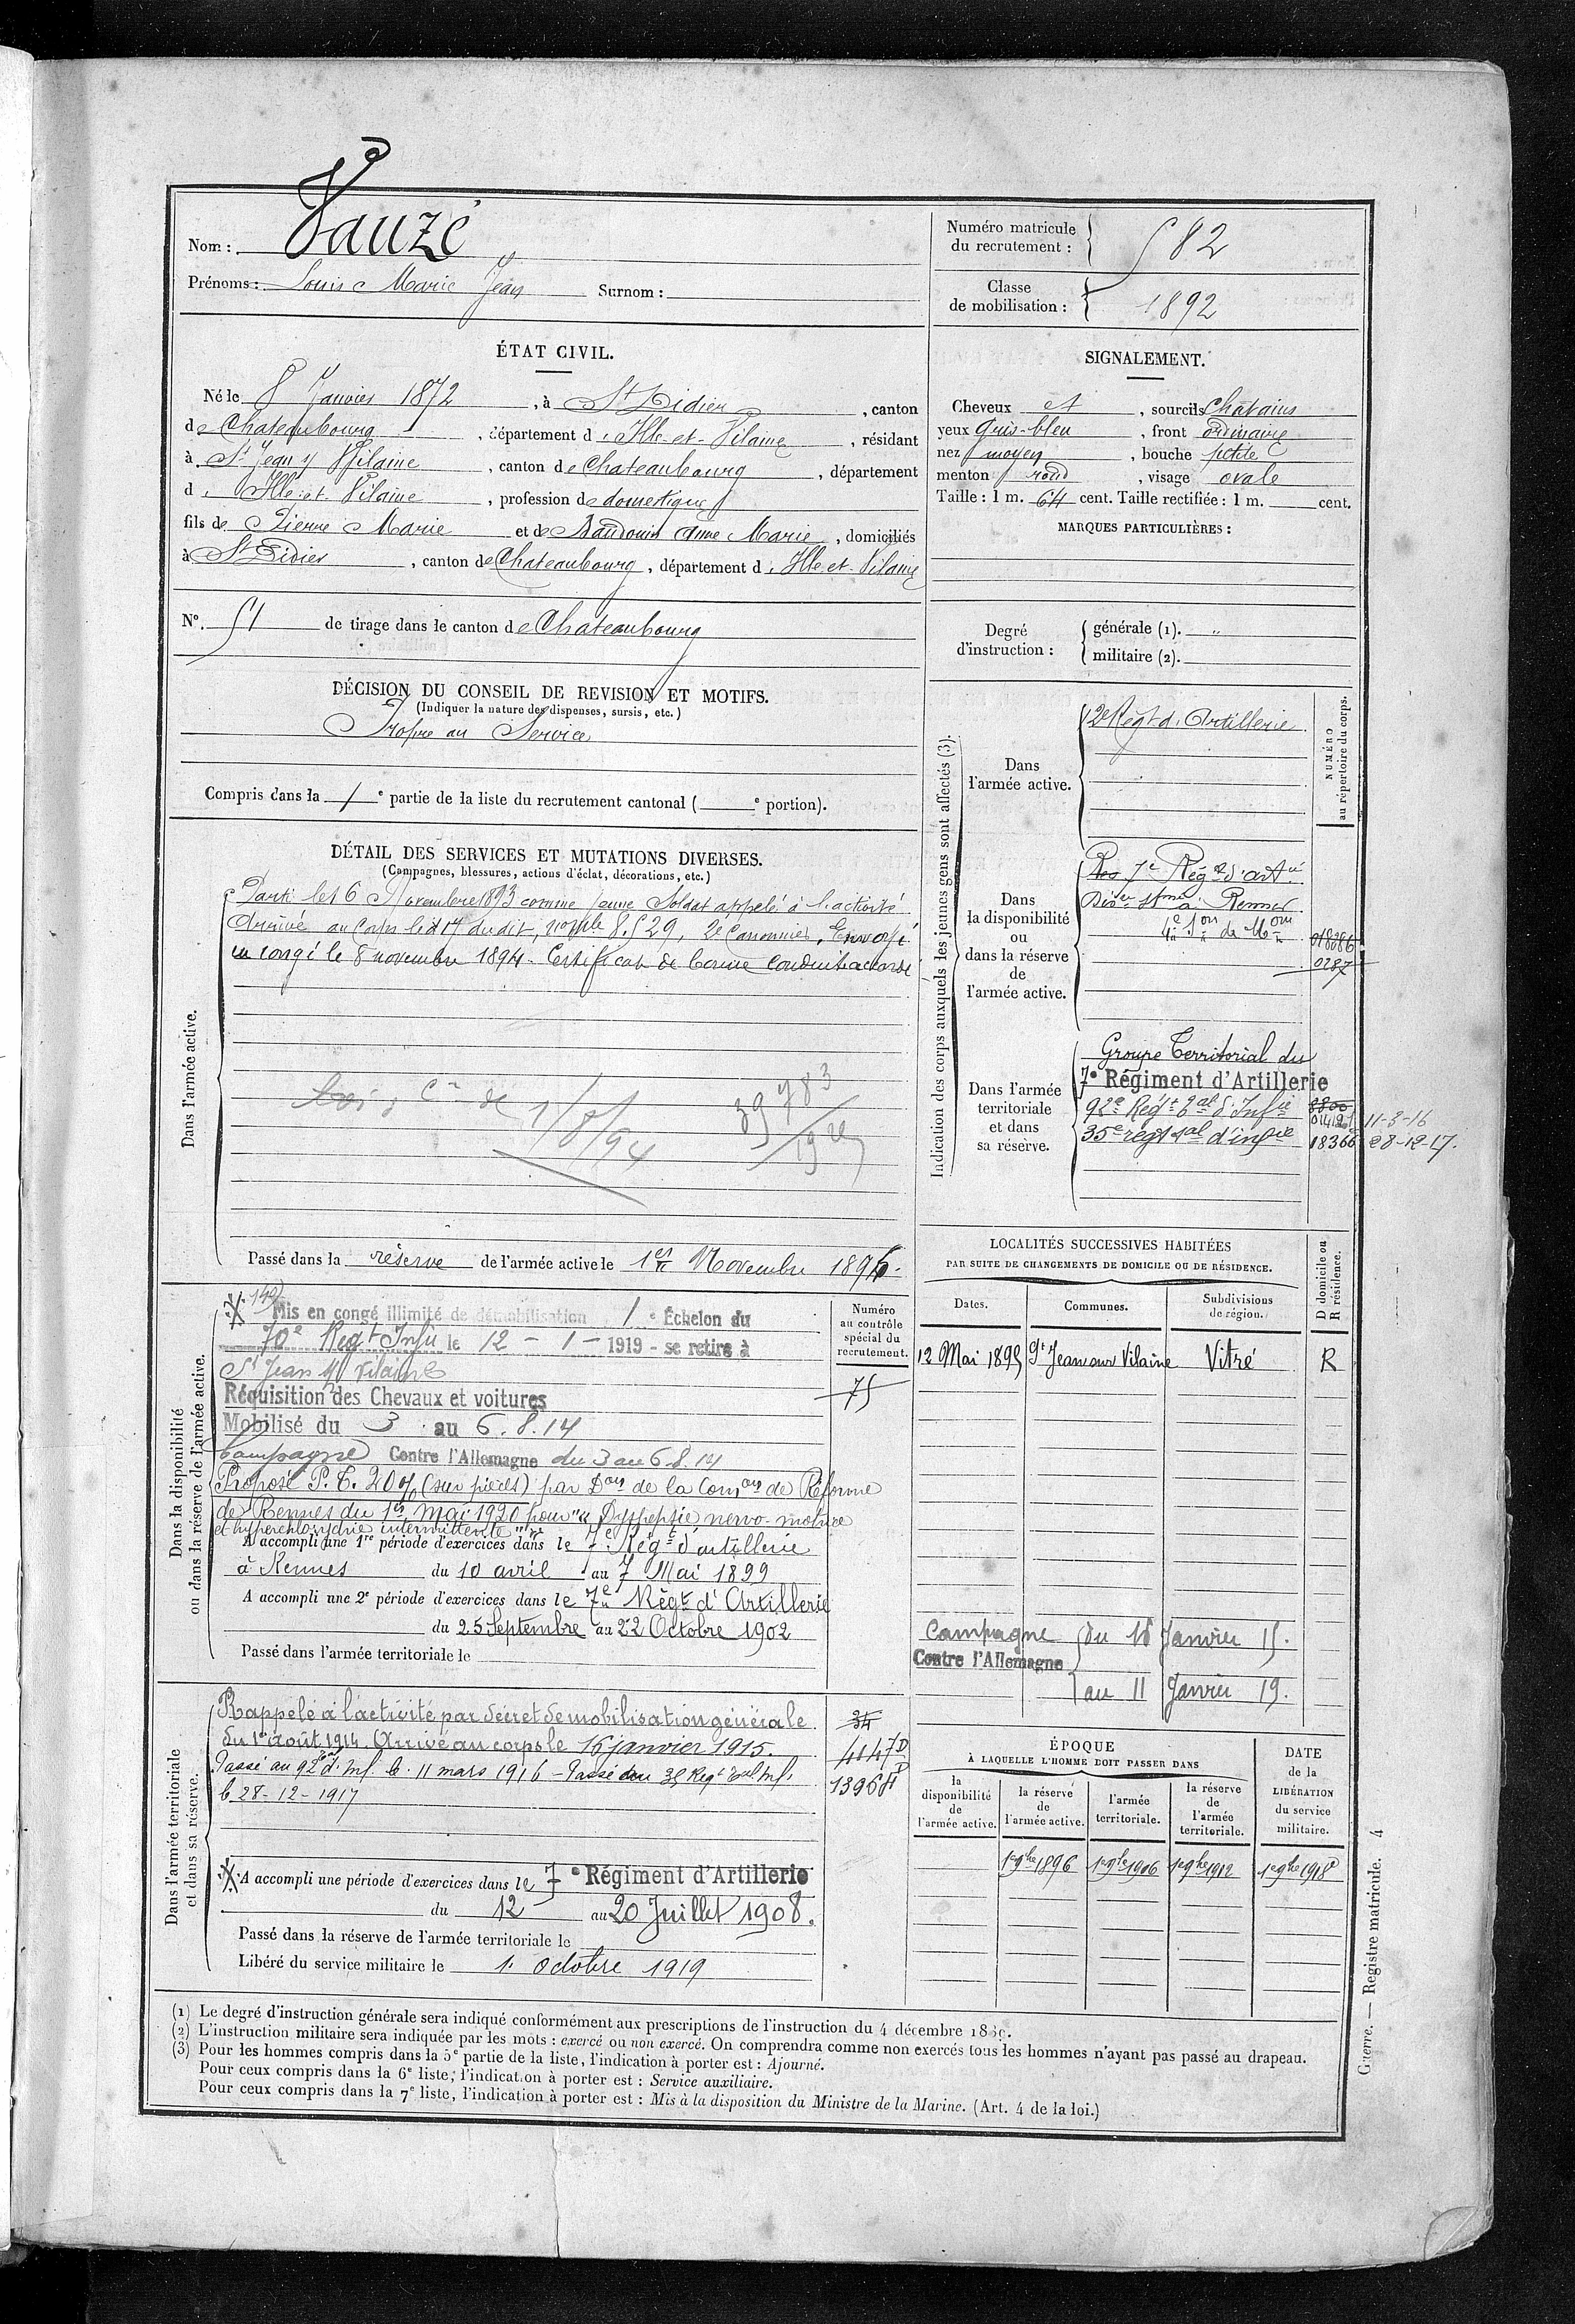 Nom : Vauzé
Prénoms : Louis Marie Jean Surnom :
Numéro matricule du recrutement : 582
Classe de mobilisation : 1892
ÉTAT CIVIL.
Né le 8 Janvier 1872, à St Didier, canton
de Chateaubourg, département d'Ille-et-Vilaine, résidant
à St Jean s/ Vilaine, canton de Chateaubourg, département
d'Ille-et-Vilaine, profession de domestique
fils de Pierre Marie et de Baudouin Anne Marie, domiciliés
à St Didier, canton de Chateaubourg, département d'Ille-et-Vilaine
N°. 51 de tirage dans le canton de Chateaubourg
SIGNALEMENT.
Cheveux et, sourcils Chatains
yeux Gris-bleu, front ordinaire
nez moyen, bouche petite
menton rond, visage ovale
Taille : 1 m. 64 cent. Taille rectifiée : 1 m. cent.
MARQUES PARTICULIÈRES :
Degré d'instruction : générale (1). "
militaire (2).
DÉCISION DU CONSEIL DE REVISION ET MOTIFS.
(Indiquer la nature des dispenses, sursis, etc.)
Propre au Service
Compris dans la 1e partie de la liste du recrutement cantonal ( e portion).
DÉTAIL DES SERVICES ET MUTATIONS DIVERSES.
(Campagnes, blessures, actions d'éclat, décorations, etc.)
Dans l'armée active.
Parti le 16 Novembre 1893 comme jeune Soldat appelé à l'activité
Arrivé au Corps le 17 dudit, no mle 8529, 2e Canonnier. Envoyé
en congé le 8 novembre 1894 - Certificat de bonne Conduite accordé
39783
Passé dans la réserve de l'armée active le 1er Novembre 1896.
Indication des corps auxquels les jeunes gens sont affectés (3).
NUMÉRO au répertoire du corps.
Dans l'armée active.
2e Régt d'Artillerie
Dans la disponibilité ou dans la réserve de l'armée active.
7e Régt d'artie
Rennes
0287
Dans l'armée territoriale et dans sa réserve.
Groupe Territorial du
7e Régiment d'Artillerie
92e Régt Tal d'Infie 11-3-16
35e régt tal d'infie 18366 28-12-17.
LOCALITÉS SUCCESSIVES HABITÉES
PAR SUITE DE CHANGEMENTS DE DOMICILE OU DE RÉSIDENCE.
Dates. Communes. Subdivisions de région. D domicile ou R résidence.
12 Mai 1895 St Jean sur Vilaine Vitré R
Campagne Contre l'Allemagne du 16 Janvier 15.
au 11 Janvier 19.
Dans la disponibilité ou dans la réserve de l'armée active.
Numéro au contrôle spécial du recrutement.
75
Mis en congé illimité de démobilisation 1e Échelon du
70e Régt Infie le 12 - 1 - 1919 - se retire à
St Jean s/ Vilaine
Réquisition des Chevaux et voitures
Mobilisé du 3 au 6.8.14
Campagne Contre l'Allemagne du 3 au 6.8.14
Proposé P.T. 20% (sur pièces) par Don de la Comon de Réforme
de Rennes du 1er Mai 1920 pour "Dyspepsie nervo-motrice
et hyperchlorydrie intermittente"
A accompli une 1re période d'exercices dans le 7e Régt d'artillerie
à Rennes du 10 avril au 7 Mai 1899
A accompli une 2e période d'exercices dans le 7e Régt d'Artillerie
du 25 Septembre au 22 Octobre 1902
Passé dans l'armée territoriale le
Dans l'armée territoriale et dans sa réserve.
Rappelé à l'activité par décret de mobilisation générale
du 1er août 1914. Arrivé au corps le 16 janvier 1915.
Passé au 92e Tal d'Inf. le 11 mars 1916 - Passé au 35 Régt Tal Inf.
le 28-12-1917
34
A accompli une période d'exercices dans le 7e Régiment d'Artillerie
du 12 au 20 Juillet 1908.
Passé dans la réserve de l'armée territoriale le
Libéré du service militaire le 1. Octobre 1919
ÉPOQUE
À LAQUELLE L'HOMME DOIT PASSER DANS
la disponibilité de l'armée active. la réserve de l'armée active. l'armée territoriale. la réserve de l'armée territoriale. DATE de la LIBÉRATION du service militaire.
1er 9bre 1896 1er 9bre 1906 1er 9bre 1912 1er 9bre 1918
(1) Le degré d'instruction générale sera indiqué conformément aux prescriptions de l'instruction du 4 décembre 1889.
(2) L'instruction militaire sera indiquée par les mots : exercé ou non exercé. On comprendra comme non exercés tous les hommes n'ayant pas passé au drapeau.
(3) Pour les hommes compris dans la 5e partie de la liste, l'indication à porter est : Ajourné.
Pour ceux compris dans la 6e liste, l'indication à porter est : Service auxiliaire.
Pour ceux compris dans la 7e liste, l'indication à porter est : Mis à la disposition du Ministre de la Marine. (Art. 4 de la loi.)
Guerre. — Registre matricule. 4